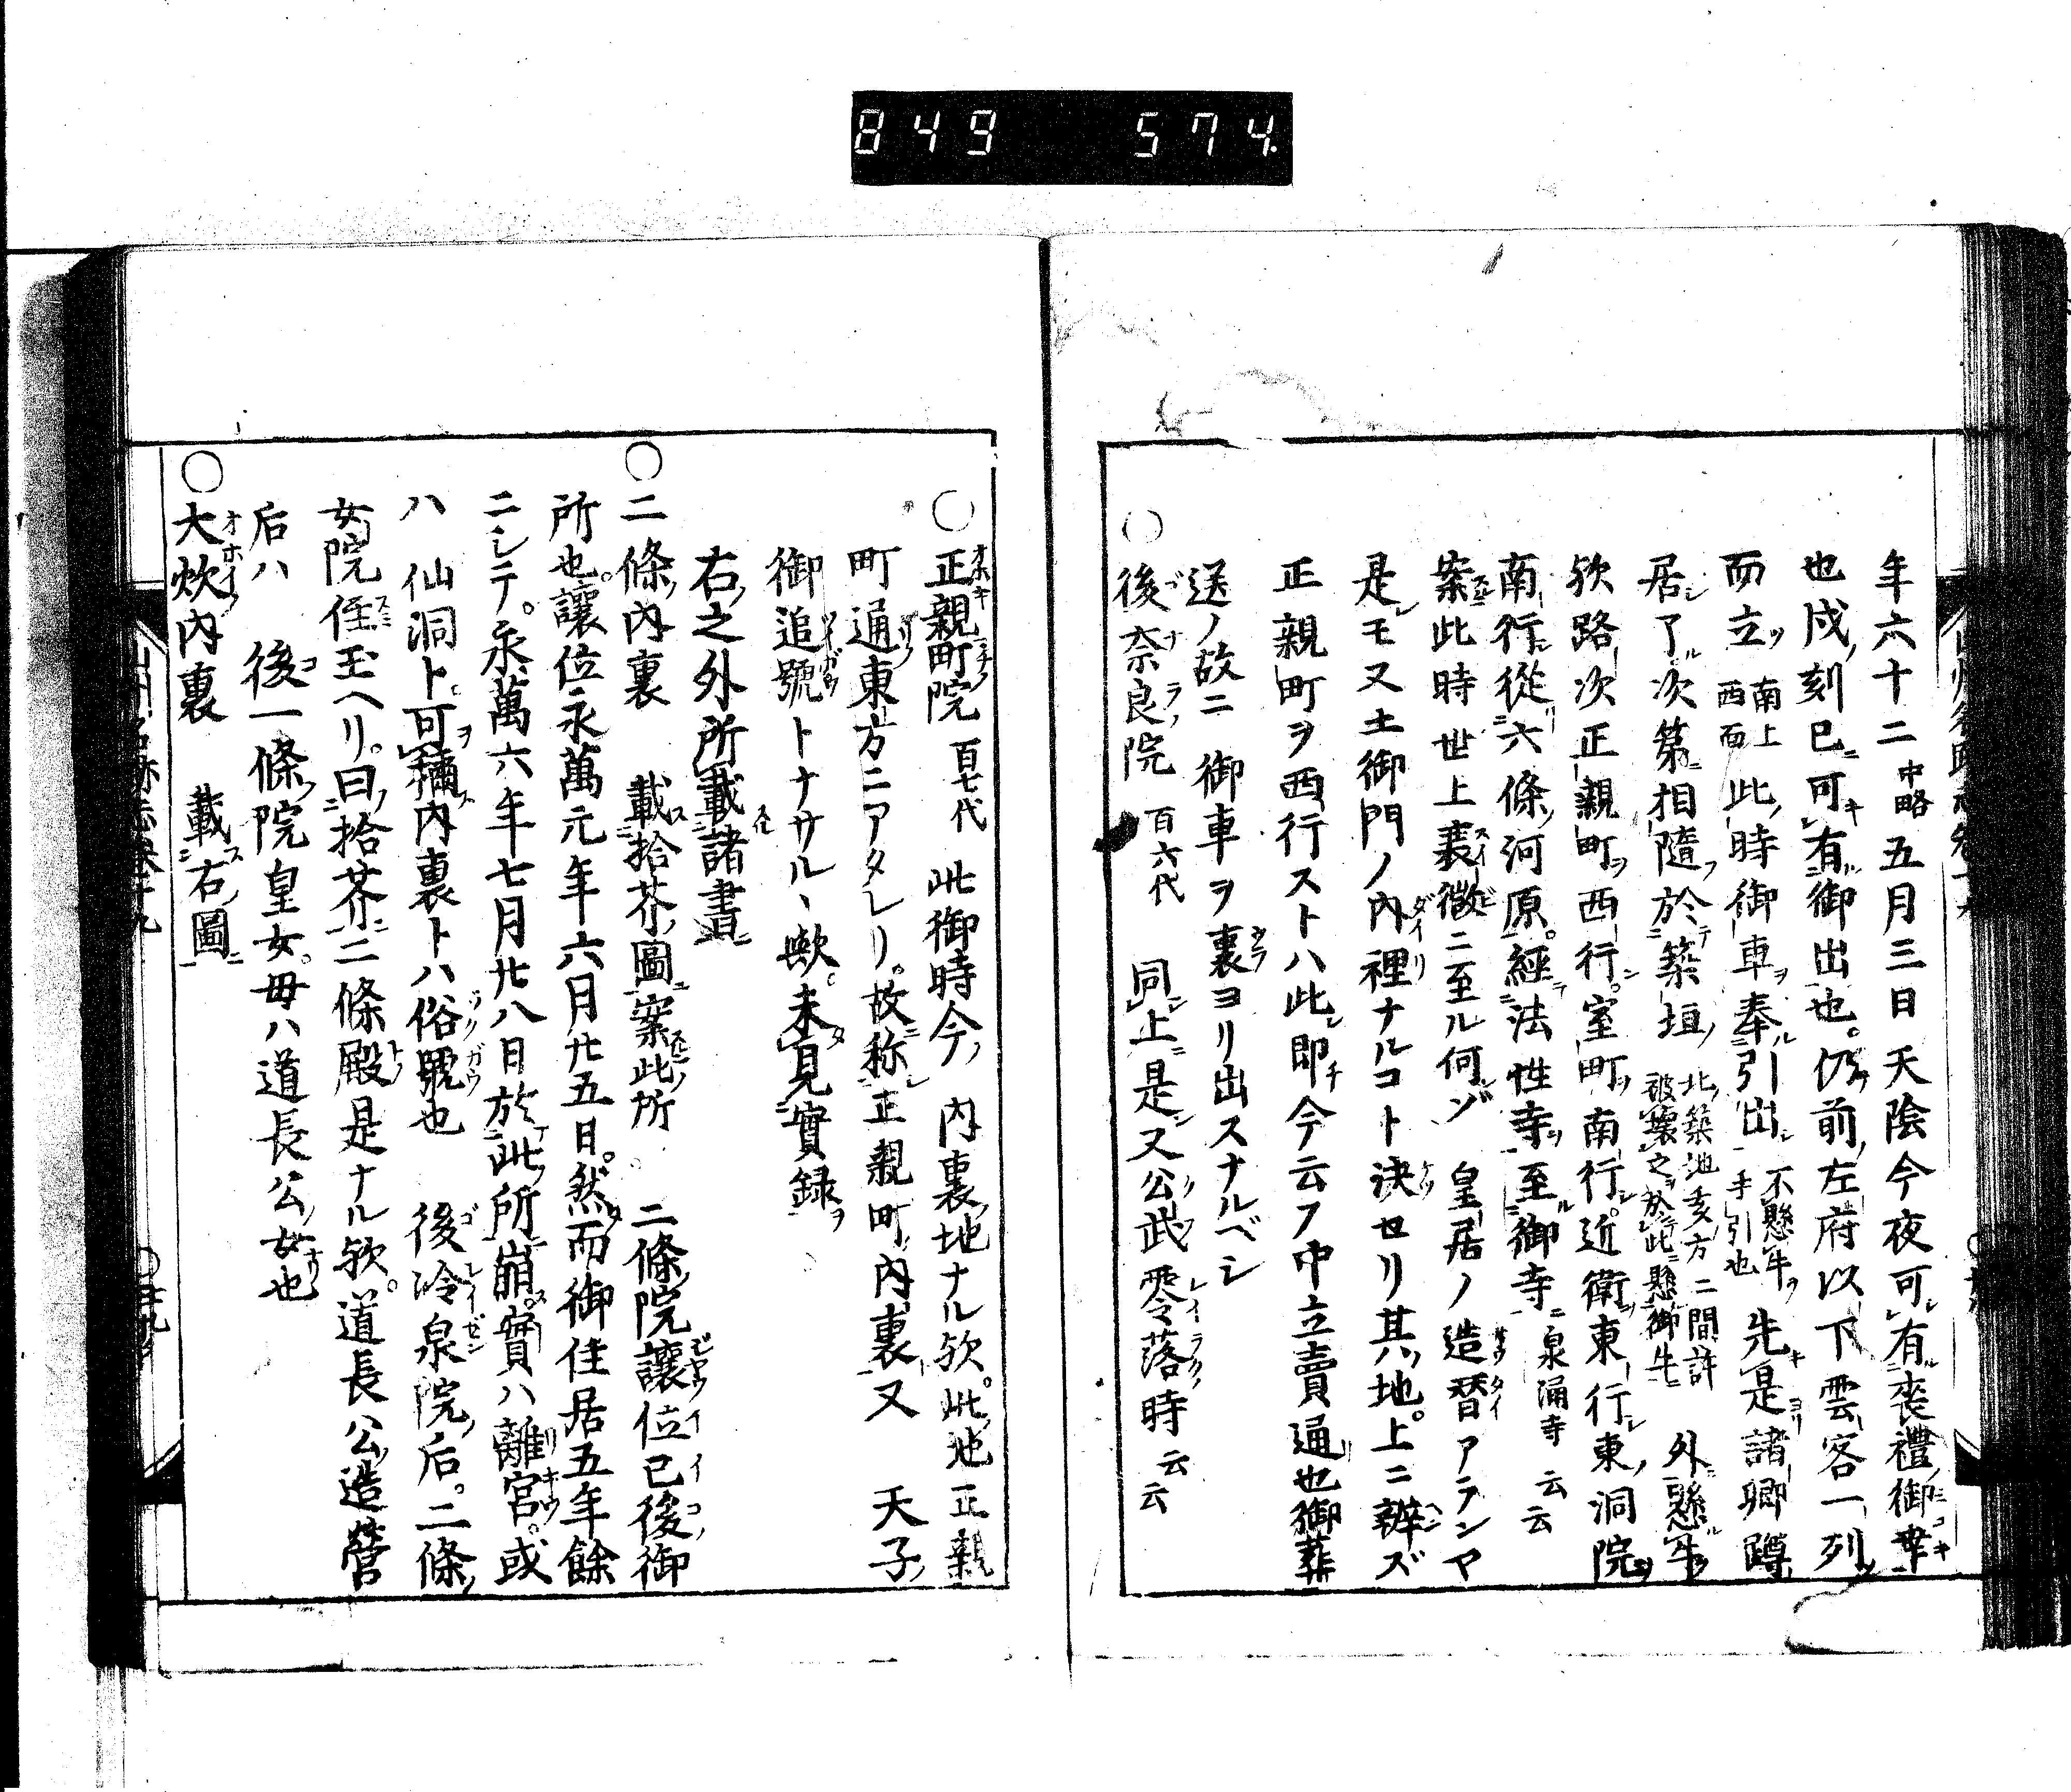 849 574.
年六十二中略五月三日天陰今夜可有喪禮御幸
也戌刻已可有御出也。仍前左府以下雲客一列
而立南上西面此時御車奉引出不懸牛手引也先是諸卿蹲
居了次第相隨於築垣北築地亥方二間許被壞之於此懸御牛外懸牛
欤路次正親町西行。室町南行近衛東行東洞院
南行從六條河原。經法性寺至御寺泉涌寺云云
案此時世上衰微ニ至ル何ゾ皇居ノ造替アランヤ
是モ又土御門ノ内裡ナルコト決セリ其地。上ニ辨ズ
正親町ヲ西行スト八此即今云フ中立賣通也御葬
送ノ故ニ御車ヲ裏ヨリ出スナルベシ
○後奈良院百六代同上是又公武零落時云云
○正親町院百七代此御時今内裏地ナル欤。此地正親
町通東方ニアタレリ。故称正親町内裏又天子
御追號トナサル丶歟。未見實録
右之外所載諸書
○二條内裏載拾芥圖案此所二條院讓位已後御
所也。讓位永萬元年六月廿五日。然而御住居五年餘
ニシテ。永萬六年七月廿八日於此所崩實ハ離宮。或
ハ仙洞ト。可稱内裏トハ俗號也後冷泉院后。二條
女院住玉ヘリ。曰拾芥ニ二條殿是ナル欤。道長公造營
后ハ後一條院皇女。母ハ道長公女也
○大炊内裏載右圖